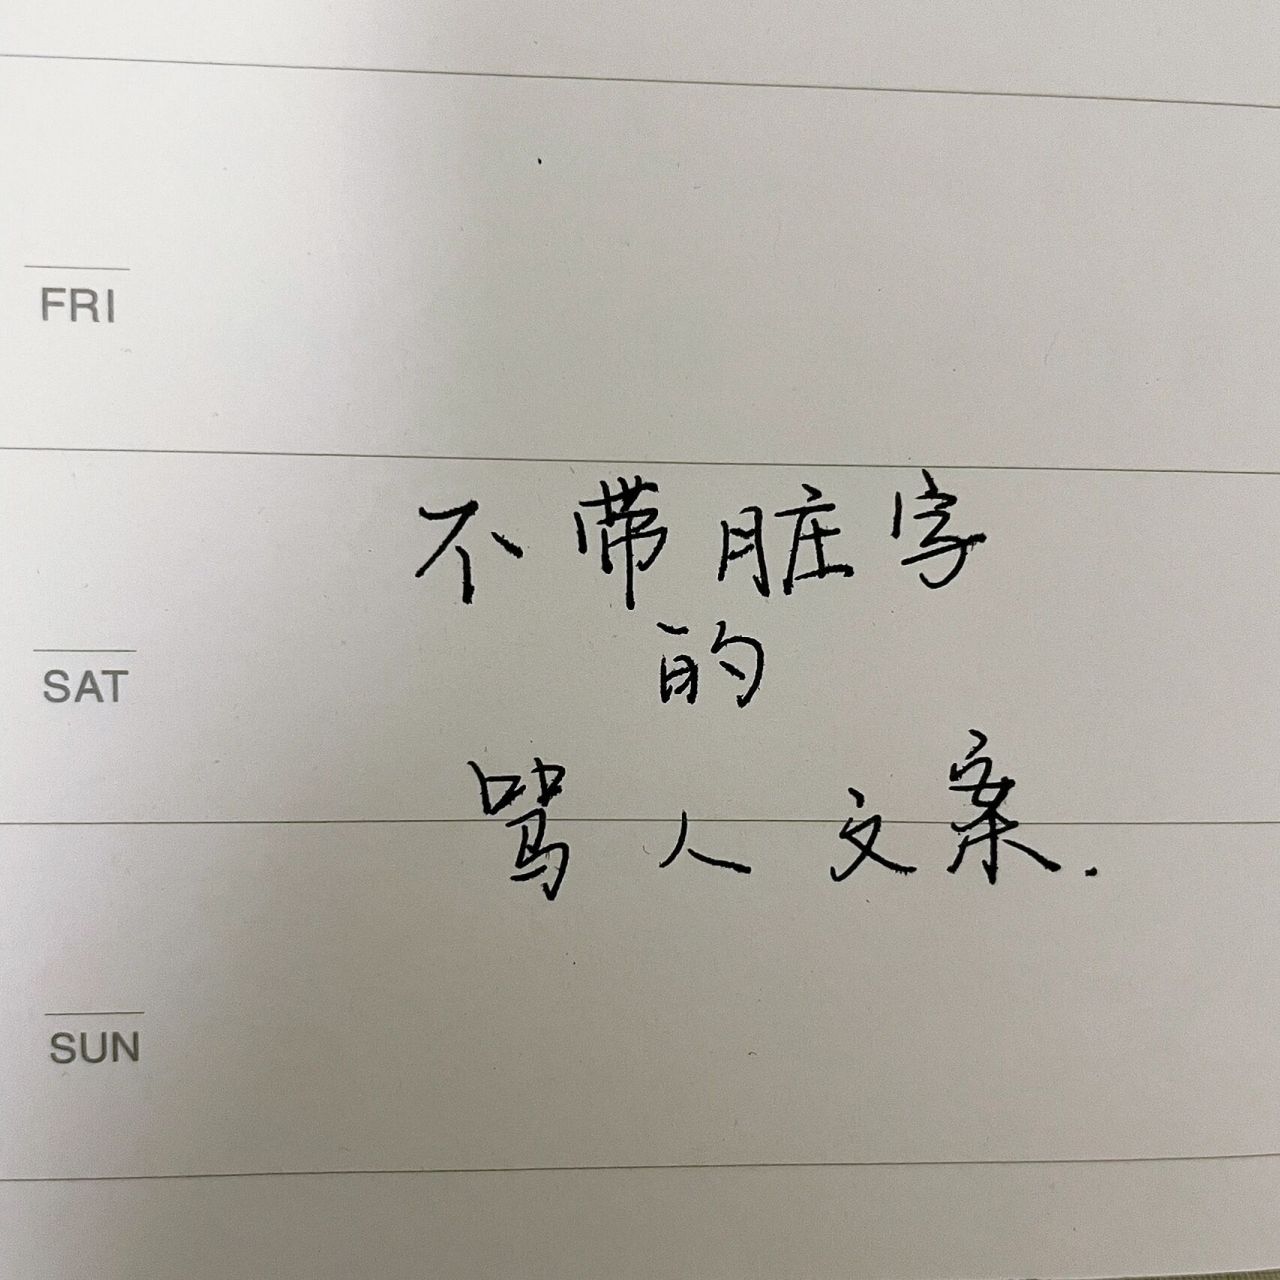 FRI
不带脏字
的
SAT
骂人文案.
SUN